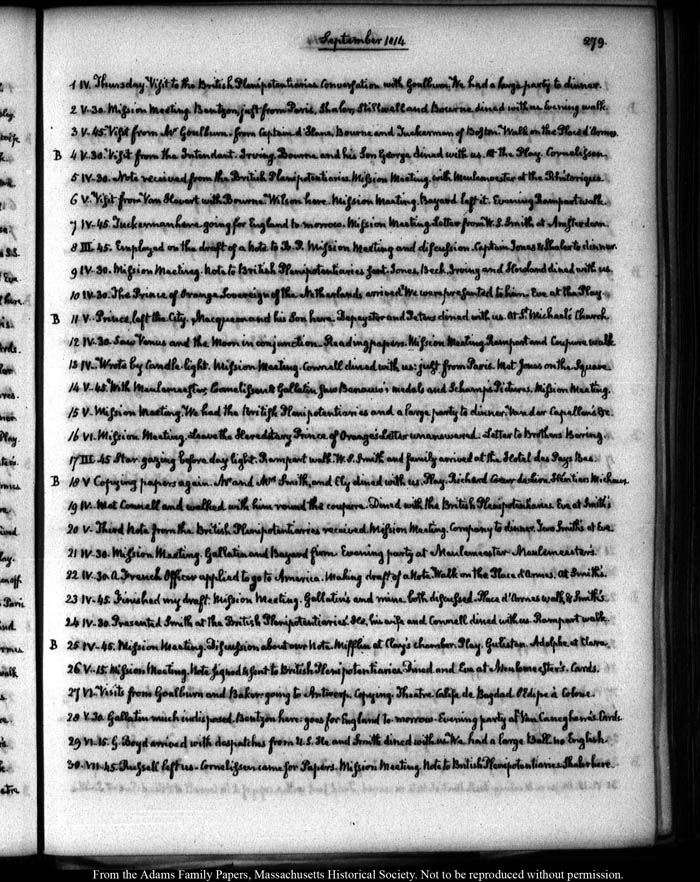 September 1814
279
1 IV. Thursday. Visit to the British Plenipotentiaries Conversation with Goulburn. We had a large party to dinner.
2 V.30. Mission Meeting. Bentzon, just from Paris, Shaler, Stillwell and Bourne dined with us Evening walk.
3 V.45. Visit from Mr Goulburn. from Captain d'Elane, Bourne and Tuckerman of Boston. Walk on the Place d'Armes.
B 4 V.30. Visit from the Intendant. Irving, Bourne and his Son George dined with us. At the Play. Cornelissen.
5 IV.30. Note received from the British Plenipotentiaries. Mission Meeting. with Meulemeester at the Rhetorique.
6 V. Visit from Van Havert with Bourne. Wilson here. Mission Meeting. Bayard left it. Evening Rampart walk.
7 IV.45. Tuckerman here going for England to morrow. Mission Meeting. Letter from W. S. Smith at Amsterdam.
8 III.45. Employed on the draft of a Note to B. P. Mission Meeting and discussion. Captain Jones & Shaler to dinner.
9 IV.30. Mission Meeting. Note to British Plenipotentiaries sent. Jones, Beck, Irving and Howland dined with us.
10 IV.30. The Prince of Orange Sovereign of the Netherlands arrived. We were presented to him. Eve at the Play.
B 11 V. Prince, left the City. Macqueen and his Son here. Depeyster and Peters dined with us. At St. Michael's Church.
12 IV.30. Saw Venus and the Moon in conjunction. Reading papers. Mission Meeting. Rampart and Coupure walk
13 IV. Wrote by Candle light. Mission Meeting. Connell dined with us: just from Paris. Met Jones on the Square
14 V.45. With Meulemeester, Cornelissen & Gallatin, saw Benowic's medals and Schamp's Pictures. Mission Meeting.
15 V. Mission Meeting. We had the British Plenipotentiaries and a large party to dinner. Van der Capellen &c.
16 VI. Mission Meeting. Leave the Hereditary Prince of Orange's Letter unanswered. Letter to Brothers Baring.
17 III.45 Star gazing before day light. Rampart walk. W. S. Smith and family arrived at the Hotel des Pays Bas.
B 18 V Copying papers again. Mr and Mrs Smith, and Ely dined with us. Play. Richard Coeur de Lion. Héritiers Michau.
19 IV. Met Connell and walked with him round the coupure. Dined with the British Plenipotentiaries. Eve at Smith's
20 V. Third Note from the British Plenipotentiaries received. Mission Meeting. Company to dinner. Two Smith's at Eve.
21 IV.30. Mission Meeting. Gallatin and Bayard firm. Evening party at Meulemeester Meulemeester's.
22 IV.30. A French Officer applied to go to America. Making draft of a Note. Walk on the Place d'Armes. At Smith's.
23 IV.45. Finished my draft. Mission Meeting. Gallatin's and mine both discussed. Place d'Armes walk & Smith's
24 IV.30. Presented Smith at the British Plenipotentiaries'. He, his wife and Connell dined with us. Rampart walk.
B 25 IV.45. Mission Meeting. Discussion about our Note. Mifflin at Clay's chamber. Play. Gulistan. Adolphe et Clara.
26 V.15. Mission Meeting. Note signed & sent to British Plenipotentiaries. Dined and Eve at Meulemeester's. Cards.
27 VI. Visits from Goulburn and Baker going to Antwerp. Copying. Theatre Calife de Bagdad. Œdipe à Colone.
28 V.30. Gallatin much indisposed. Bentzon here: goes for England to-morrow. Evening party at Van Caneghem's. Cards.
29 VI.15. G. Boyd arrived with despatches from U.S. He and Smith dined with us. We had a large Ball. no English.
30. VII.45. Russell left us. Cornelissen came for Papers. Mission Meeting. Note to British Plenipotentiaries. Shaler here.
From the Adams Family Papers, Massachusetts Historical Society. Not to be reproduced without permission.